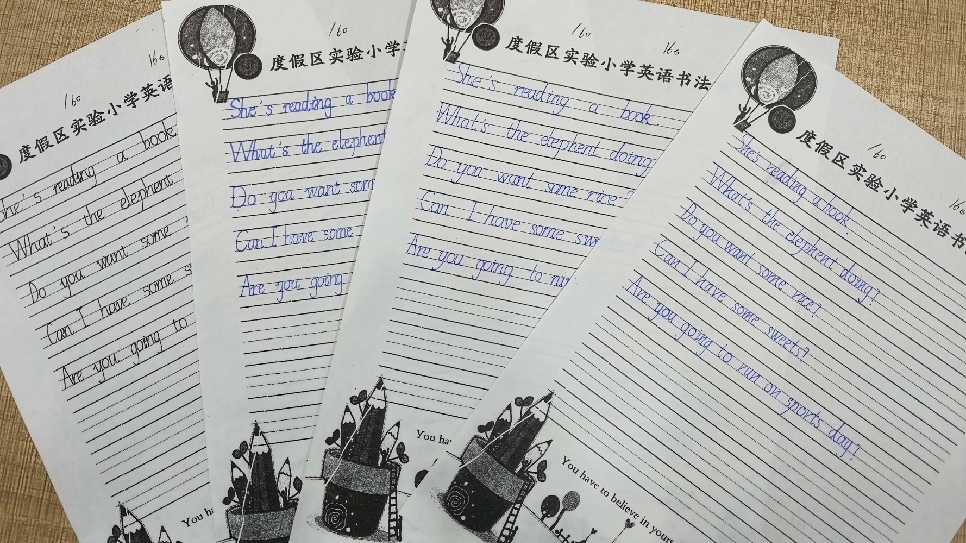 160
160
度假区实验小学英语
She's reading a book
What's the elephent
Do you want some
Can I have some s
Are you going to
160
度假区实验小学
She's reading a book
What's the elephent
Do you want som
Can I have some
Are you going
You ha
160
160
度假区实验小学英语书法
She's reading a book
What's the elephent doing
Do you want some rice?
Can I have some swe
Are you going to run
You ha
160
160
度假区实验小学英语书
She's reading a book.
What's the elephent doing?
Do you want some rice?
Can I have some sweets?
Are you going to run on sports day?
You have to believe in yours